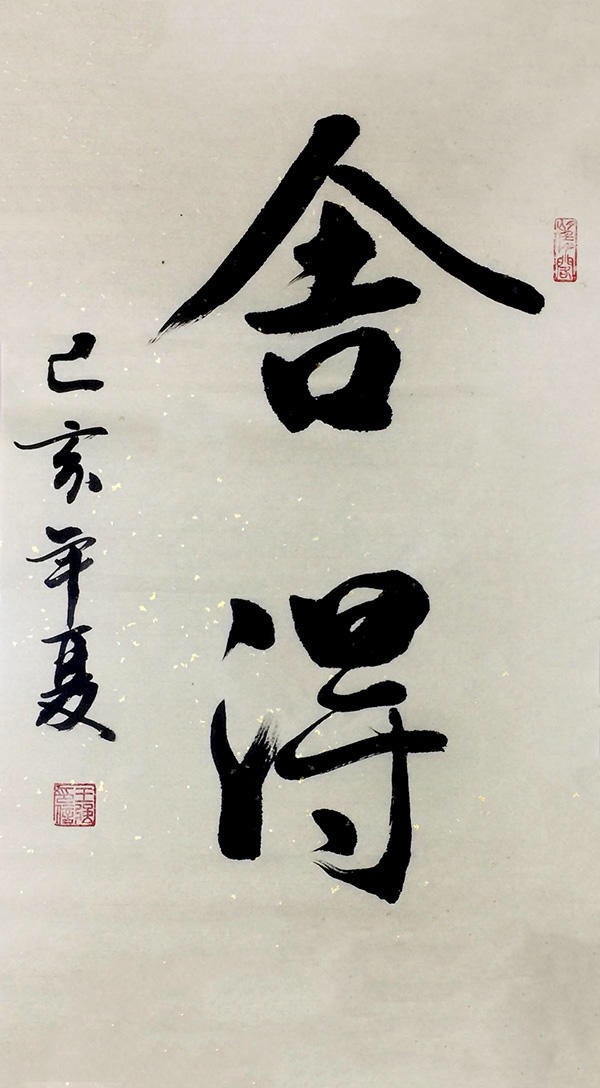 舍得
己亥年夏